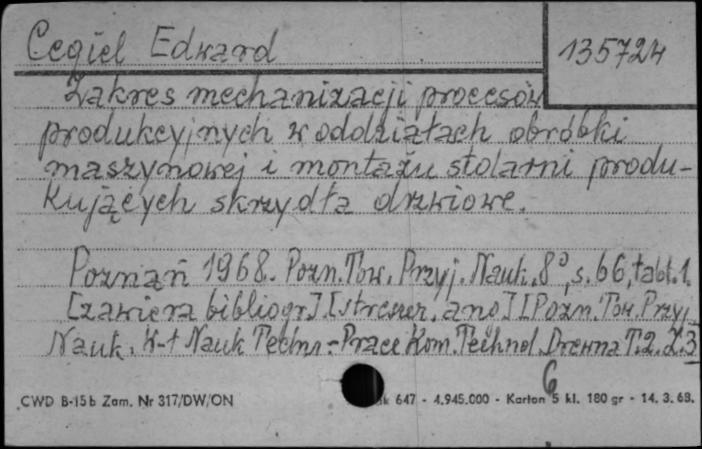 Cegiel Edward
135724
Zakres mechanizacji procesów
produkcyjnych w oddziałach obróbki
maszynowej i montażu stolarni produ-
kujących skrzydła drzwiowe.
Poznań 1968. Pozn. Tow. Przyj. Nauk. 8°, s. 66, tabl. 1.
[zawiera bibliogr.] [streszcz. ang.] [Pozn. Tow. Przyj.
Nauk. W-ł Nauk Techn.-Prace Kom. Technol. Drewna T. 2. Z. 3
6
CWD B-15b Zam. Nr 317/DW/ON
647 - 4.945.000 - Karton 5 kl. 180 gr - 14. 3. 68.